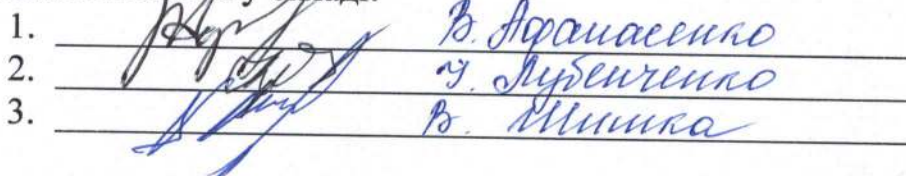 1. В. Афанасенко
2. І. Лубенченко
3. В. Шишка